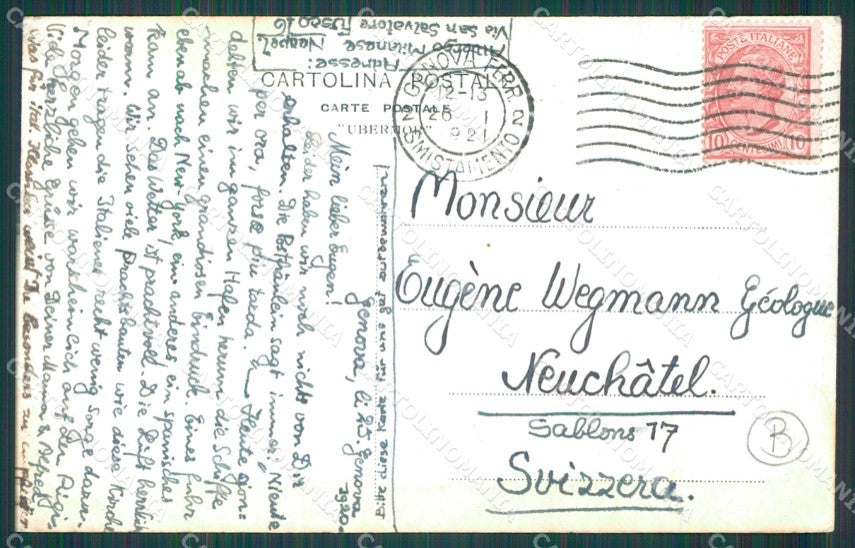 Adresse:
Albergo Milanese Neapel,
Via San Salvatore Fusco 6
CARTOLINA POSTALE
CARTE POSTALE
"UBERMOR"
GENOVA FERR. 2
12-13
26 1
921
SMISTAMENTO
POSTE ITALIANE
10 CENTESIMI 10
Monsieur
Eugène Wegmann Géologue
Neuchâtel.
Sablons 17
Svizzera.
B
Bitte diese Karte für uns gut aufbewahren
Genova,
1920.
Mein lieber Eugen!
Leider haben wir noch nichts von Dir
erhalten. Die Postfräulein sagt immer: Niente
per ora, forse più tarda. Heute gon-
delten wir im ganzen Hafen herum die Schiffe
machen einen grandiosen Eindruck. Eines fuhr
eben ab nach New York, ein anderes ein spanisches
kam an. Das Wetter ist prachtvoll. Die Luft herrlich
warm. Wir sehen viele Prachtbauten wie diese Kirche
leider tragen die Italiener recht wenig Sorge darum.
Morgen gehen wir wahrscheinlich auf den
Viele herzliche Grüsse von Deiner Mama & Alfred
was für ital.
CARTOLINOMANIA